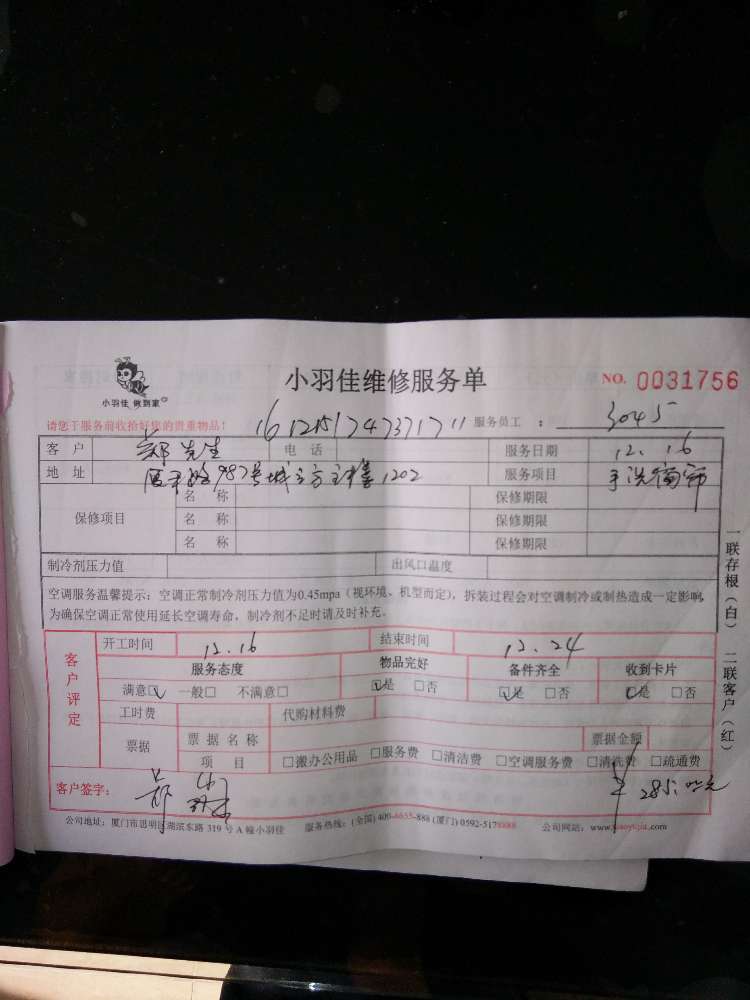 小羽佳 做到家
小羽佳维修服务单 NO. 0031756
请您于服务前收拾好您的贵重物品! 161215174737111 服务员工 : 3045
客户 郑先生 电话 服务日期 12.16
地址 987号城立方 1202 服务项目 手洗窗帘
保修项目 名称 保修期限
名称 保修期限
名称 保修期限
制冷剂压力值 出风口温度
空调服务温馨提示:空调正常制冷剂压力值为0.45mpa(视环境、机型而定),拆装过程会对空调制冷或制热造成一定影响,
为确保空调正常使用延长空调寿命,制冷剂不足时请及时补充。
客户评定
开工时间 12.16 结束时间 12.24
服务态度 物品完好 备件齐全 收到卡片
满意☑ 一般□ 不满意□ ☑是 □否 ☑是 □否 ☑是 □否
工时费 代购材料费
票据 票据名称 票据金额
项目 □搬办公用品 □服务费 □清洁费 □空调服务费 □清洗费 □疏通费
客户签字: ¥285.00元
公司地址:厦门市思明区湖滨东路 319 号 A 幢小羽佳 服务热线:(全国) 400-6655-888 (厦门) 0592-5178888 公司网站:
一联存根(白) 二联客户(红)